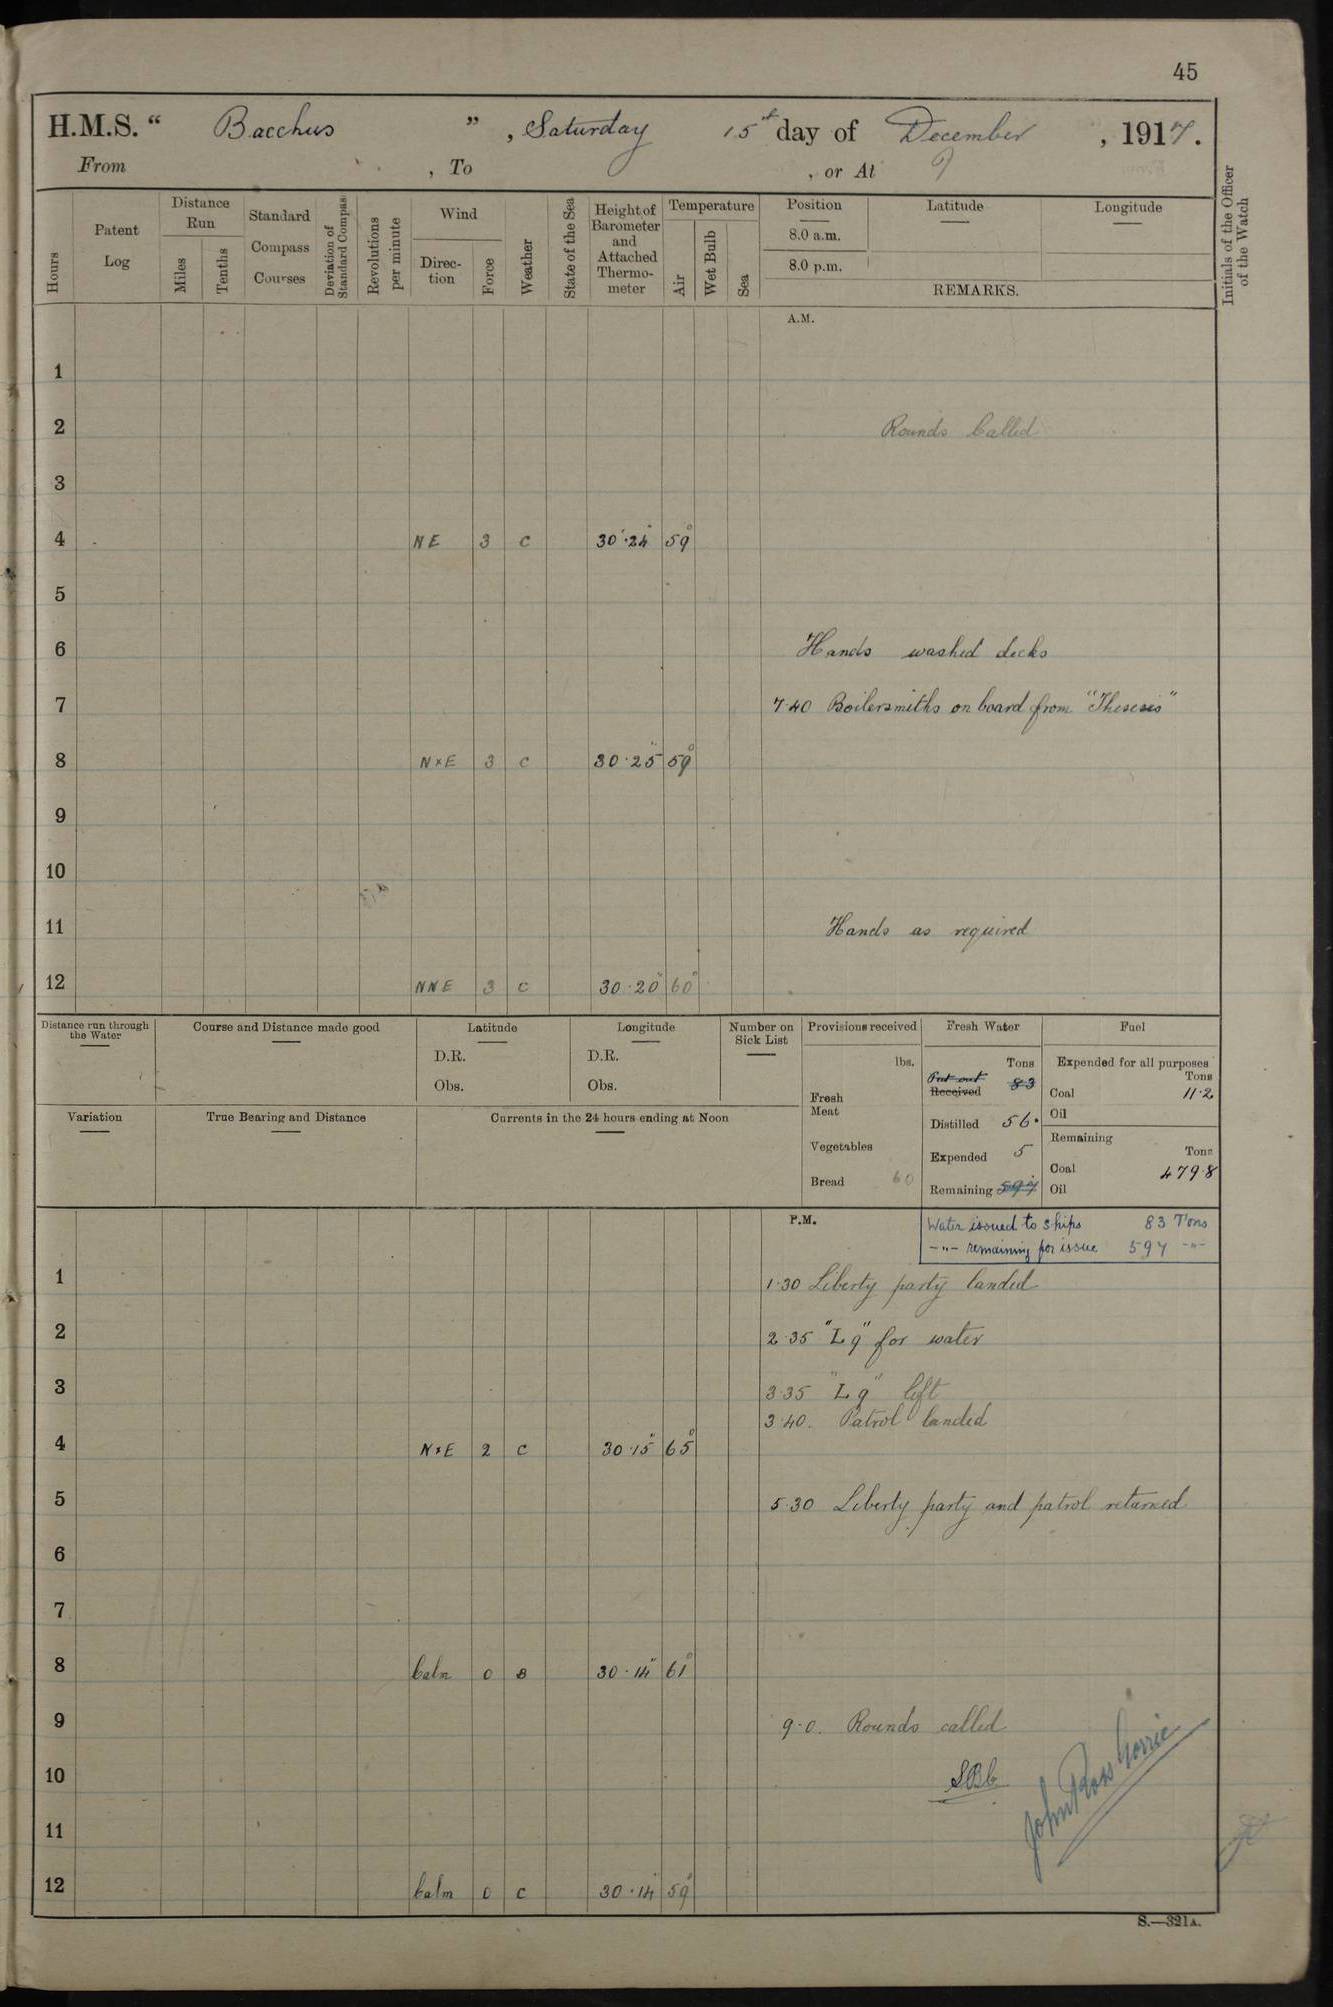 45
H.M.S. “ Bacchus ” , Saturday 15th day of December , 1917.
From , To , or At
Hours
Patent Log
Distance Run
Miles
Tenths
Standard Compass Courses
Deviation of Standard Compass
Revolutions per minute
Wind
Direc-tion
Force
Weather
State of the Sea
Height of Barometer and Attached Thermo-meter
Temperature
Air
Wet Bulb
Sea
Position Latitude Longitude
8.0 a.m.
8.0 p.m.
REMARKS.
Initials of the Officer of the Watch
A.M.
1
2 Rounds Called
3
4 NE 3 C 30·24 59°
5
6 Hands washed decks
7 7·40 Boilersmiths on board from "Theseus"
8 N×E 3 C 30·25 59°
9
10
11 Hands as required
12 NNE 3 C 30·20 60°
Distance run through the Water
Course and Distance made good
Latitude
D.R.
Obs.
Longitude
D.R.
Obs.
Number on Sick List
Variation
True Bearing and Distance
Currents in the 24 hours ending at Noon
Provisions received
lbs.
Fresh Meat
Vegetables
Bread 60
Fresh Water
Tons
Put out
Received 83
Distilled 56·
Expended 5
Remaining 597
Fuel
Expended for all purposes
Tons
Coal 11·2
Oil
Remaining
Tons
Coal 479·8
Oil
P.M.
Water issued to ships 83 Tons
-"- remaining for issue 597 -"-
1 1·30 Liberty party landed
2 2·35 "L9" for water
3 3·35 "L9" left
3·40. Patrol landed
4 N×E 2 C 30·15 65°
5 5·30 Liberty party and patrol returned
6
7
8 Calm 0 B 30·14 61°
9 9·0. Rounds called
10 SBC
11
12 Calm 0 C 30·14 59°
John Ross Gorrie
S.—321A.